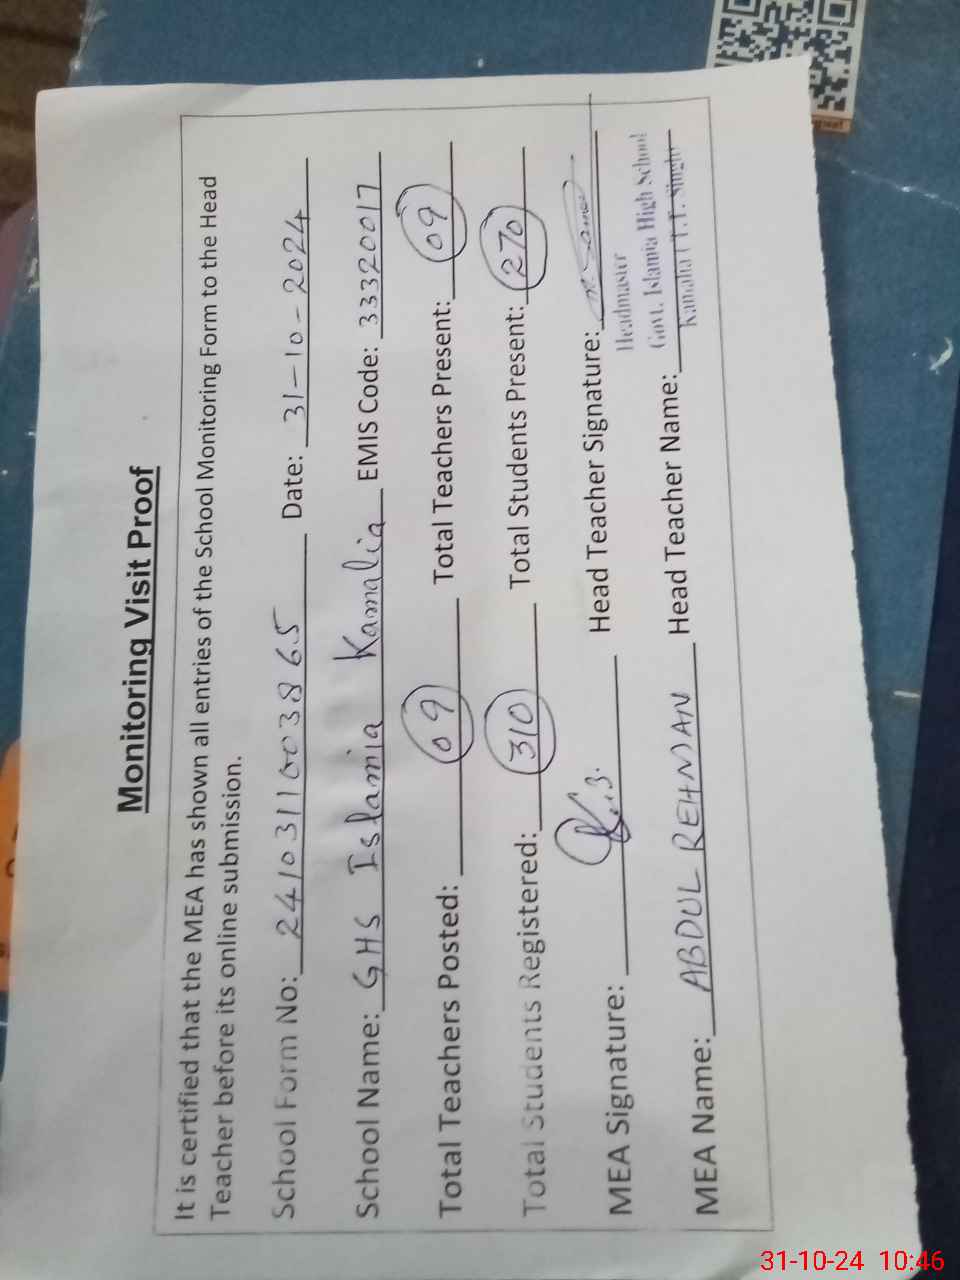 Monitoring Visit Proof
It is certified that the MEA has shown all entries of the School Monitoring Form to the Head
Teacher before its online submission.
School Form No: 2410311003865 Date: 31-10-2024
School Name: GHS Islamia Kamalia EMIS Code: 33320017
Total Teachers Posted: 09 Total Teachers Present: 09
Total Students Registered: 310 Total Students Present: 270
MEA Signature: Head Teacher Signature:
Headmaster
Govt. Islamia High School
MEA Name: ABDUL REHMAN Head Teacher Name: Kamalia (T.T. Singh)
31-10-24 10:46